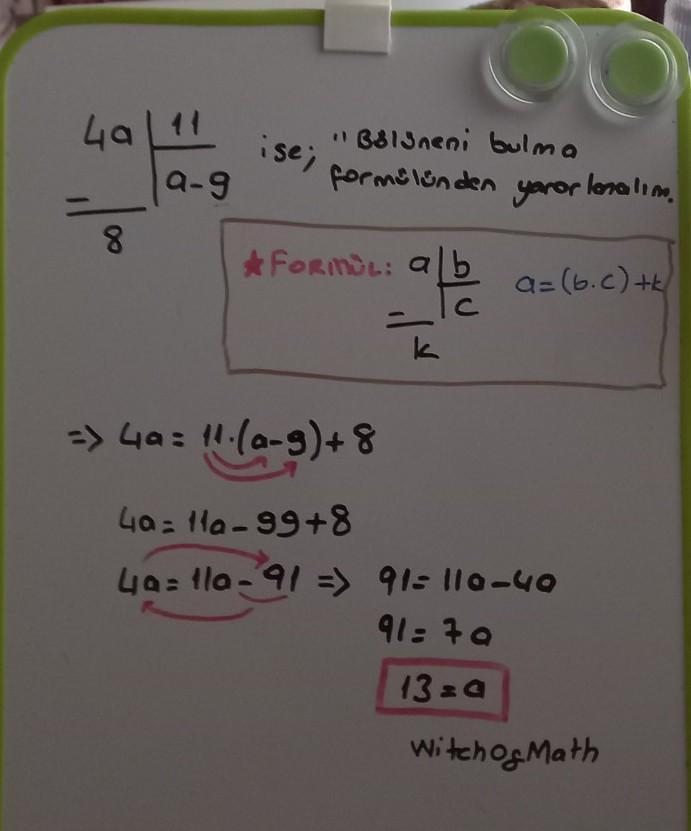 4a | 11 ise; "Bölüneni bulma
a-9 formülünden yararlanalım.
-
8
★Formül: a | b a=(b.c)+k
- c
k
=> 4a = 11.(a-9)+8
4a = 11a-99+8
4a = 11a-91 => 91=11a-4a
91=7a
13=a
WitchOfMath